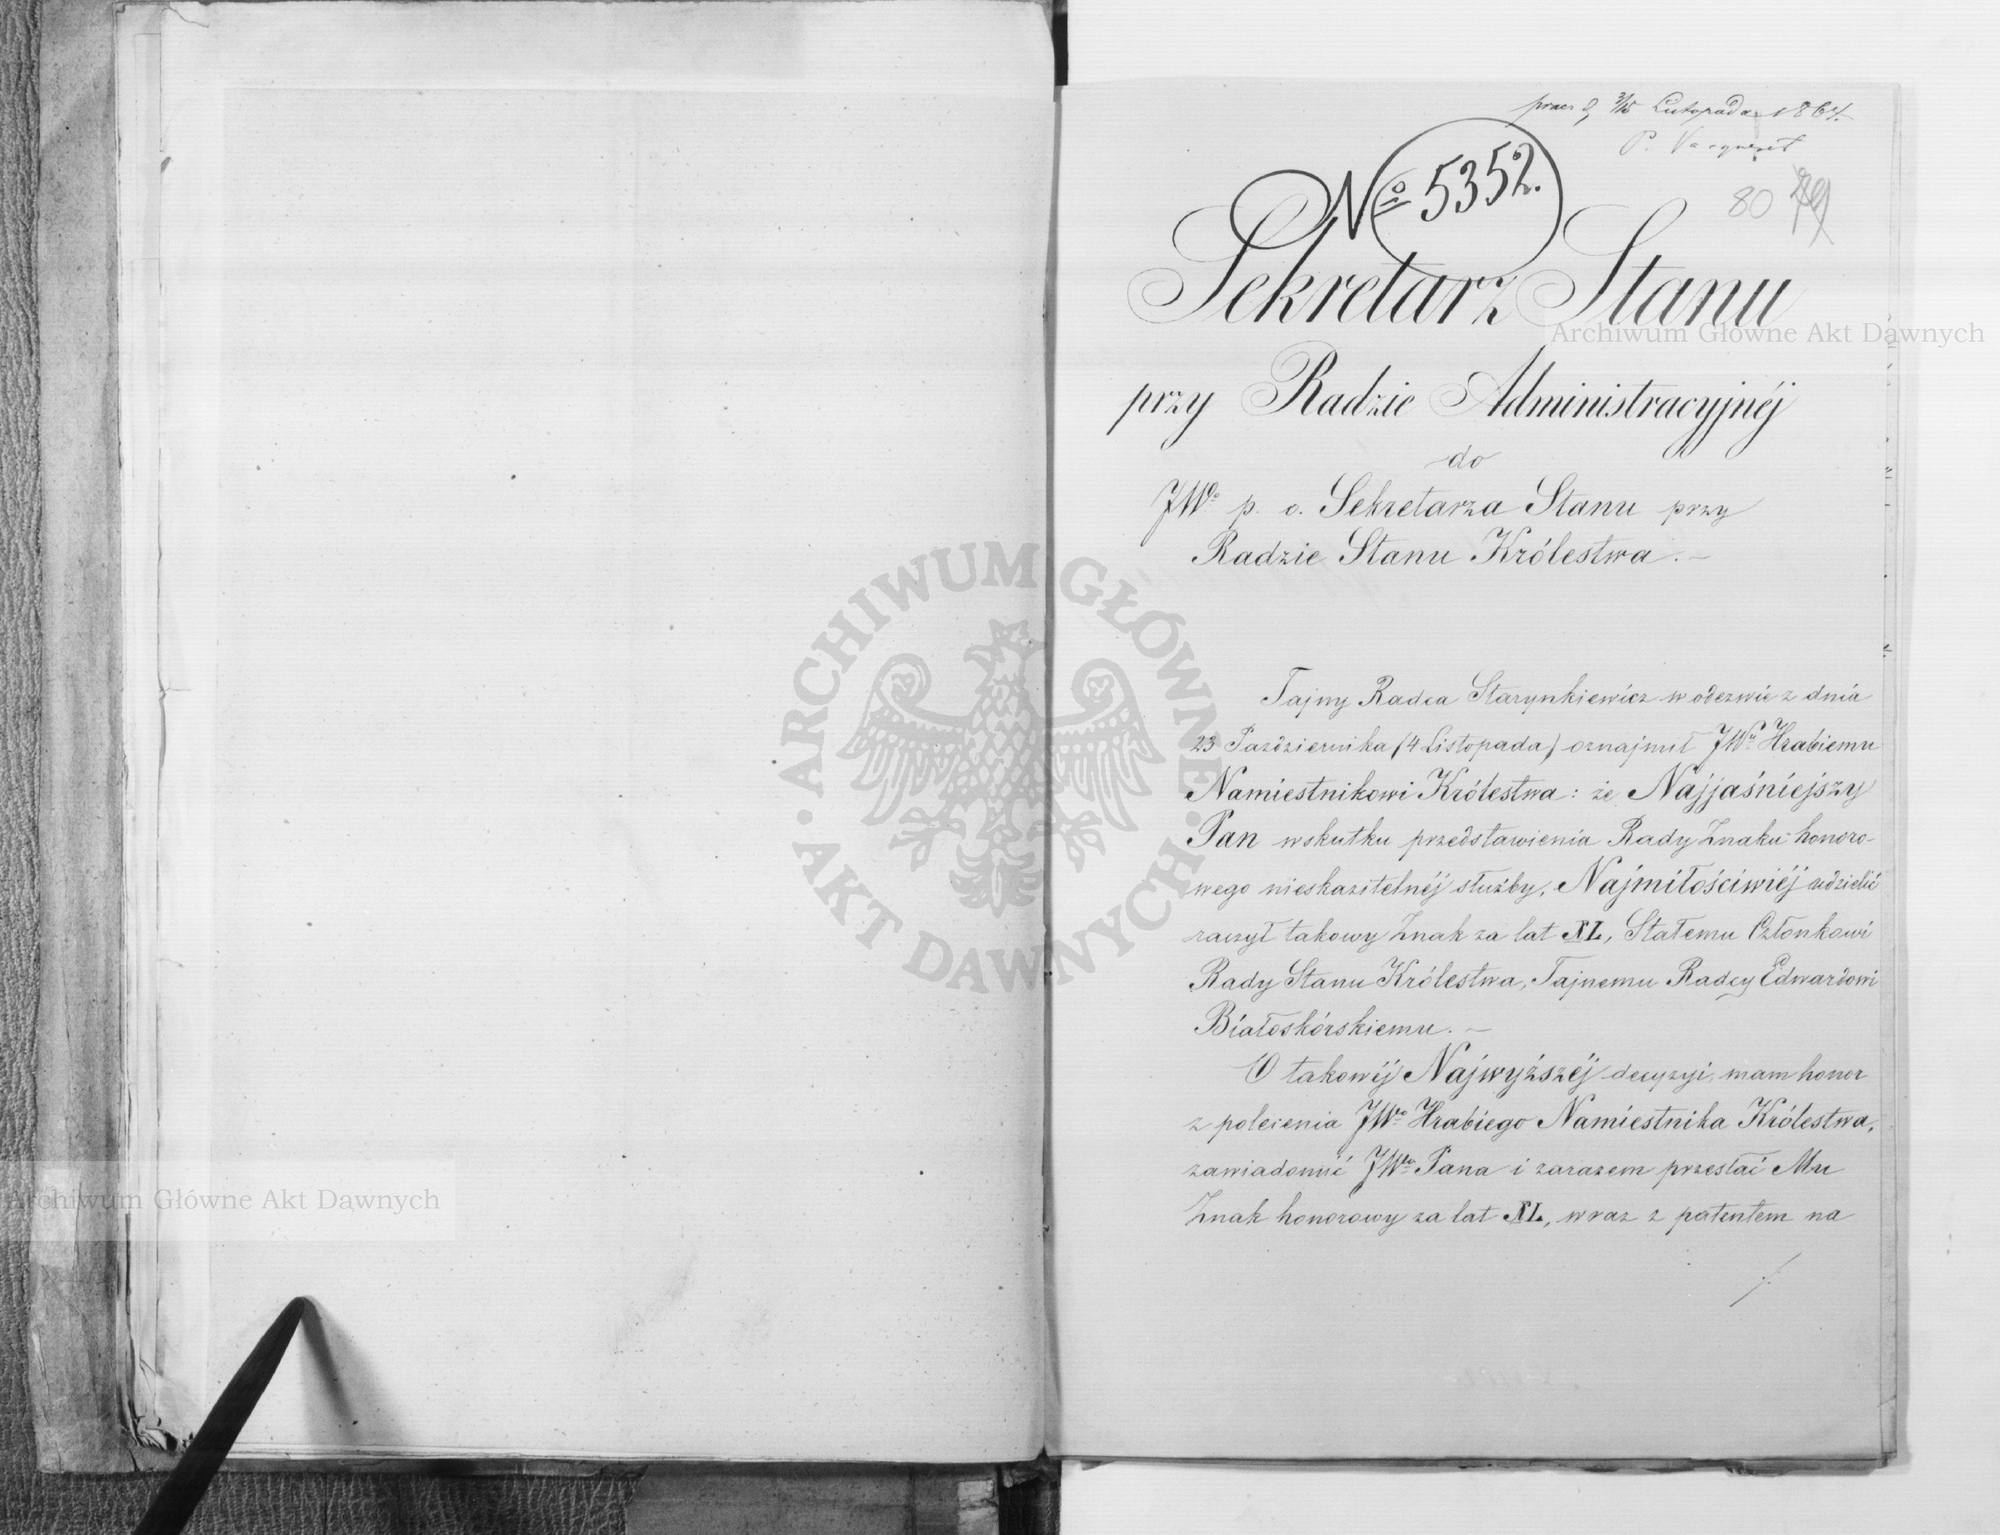 3/15 Listopada 1864.
P.
No 5352.
80
Sekretarz Stanu
Archiwum Główne Akt Dawnych
przy Radzie Administracyjnéj
do
JWo p. o. Sekretarza Stanu przy
Radzie Stanu Królestwa.
ARCHIWUM GŁÓWNE AKT DAWNYCH
Tajny Radca Starynkiewicz w odezwie z dnia
23 Października (4 Listopada) oznajmił JWu Hrabiemu
Namiestnikowi Królestwa: że Najjaśniejszy
Pan wskutku przedstawienia Rady Znaku honoro-
wego nieskazitelnéj służby, Najmiłościwiéj udzielić
raczył takowy Znak za lat XL, Stałemu Członkowi
Rady Stanu Królestwa, Tajnemu Radcy Edwardowi
Białoskórskiemu.
O takowéj Najwyższéj decyzyi, mam honor
z polecenia JWo Hrabiego Namiestnika Królestwa,
zawiadomić JWo Pana i zarazem przesłać Mu
Znak honorowy za lat XL, wraz z patentem na
Archiwum Główne Akt Dawnych